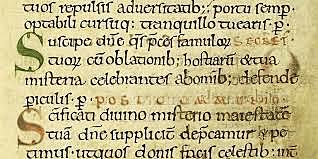 tuos repulsis aduersitatib; portu semp
optabili cursuq; tranquillo tuearis. p̄
Suscipe dn̄e qs p̄ces famulor̄ SECRET
tuor̄ cū oblationib; hostiarū & tua
misteria celebrantes abomib; defende
piculis. p̄
Scificati diuino misterio maiestatē
tuā dn̄e supplicit̄ dep̄camur & pe
timus. utquos donis facis celestib; int̄